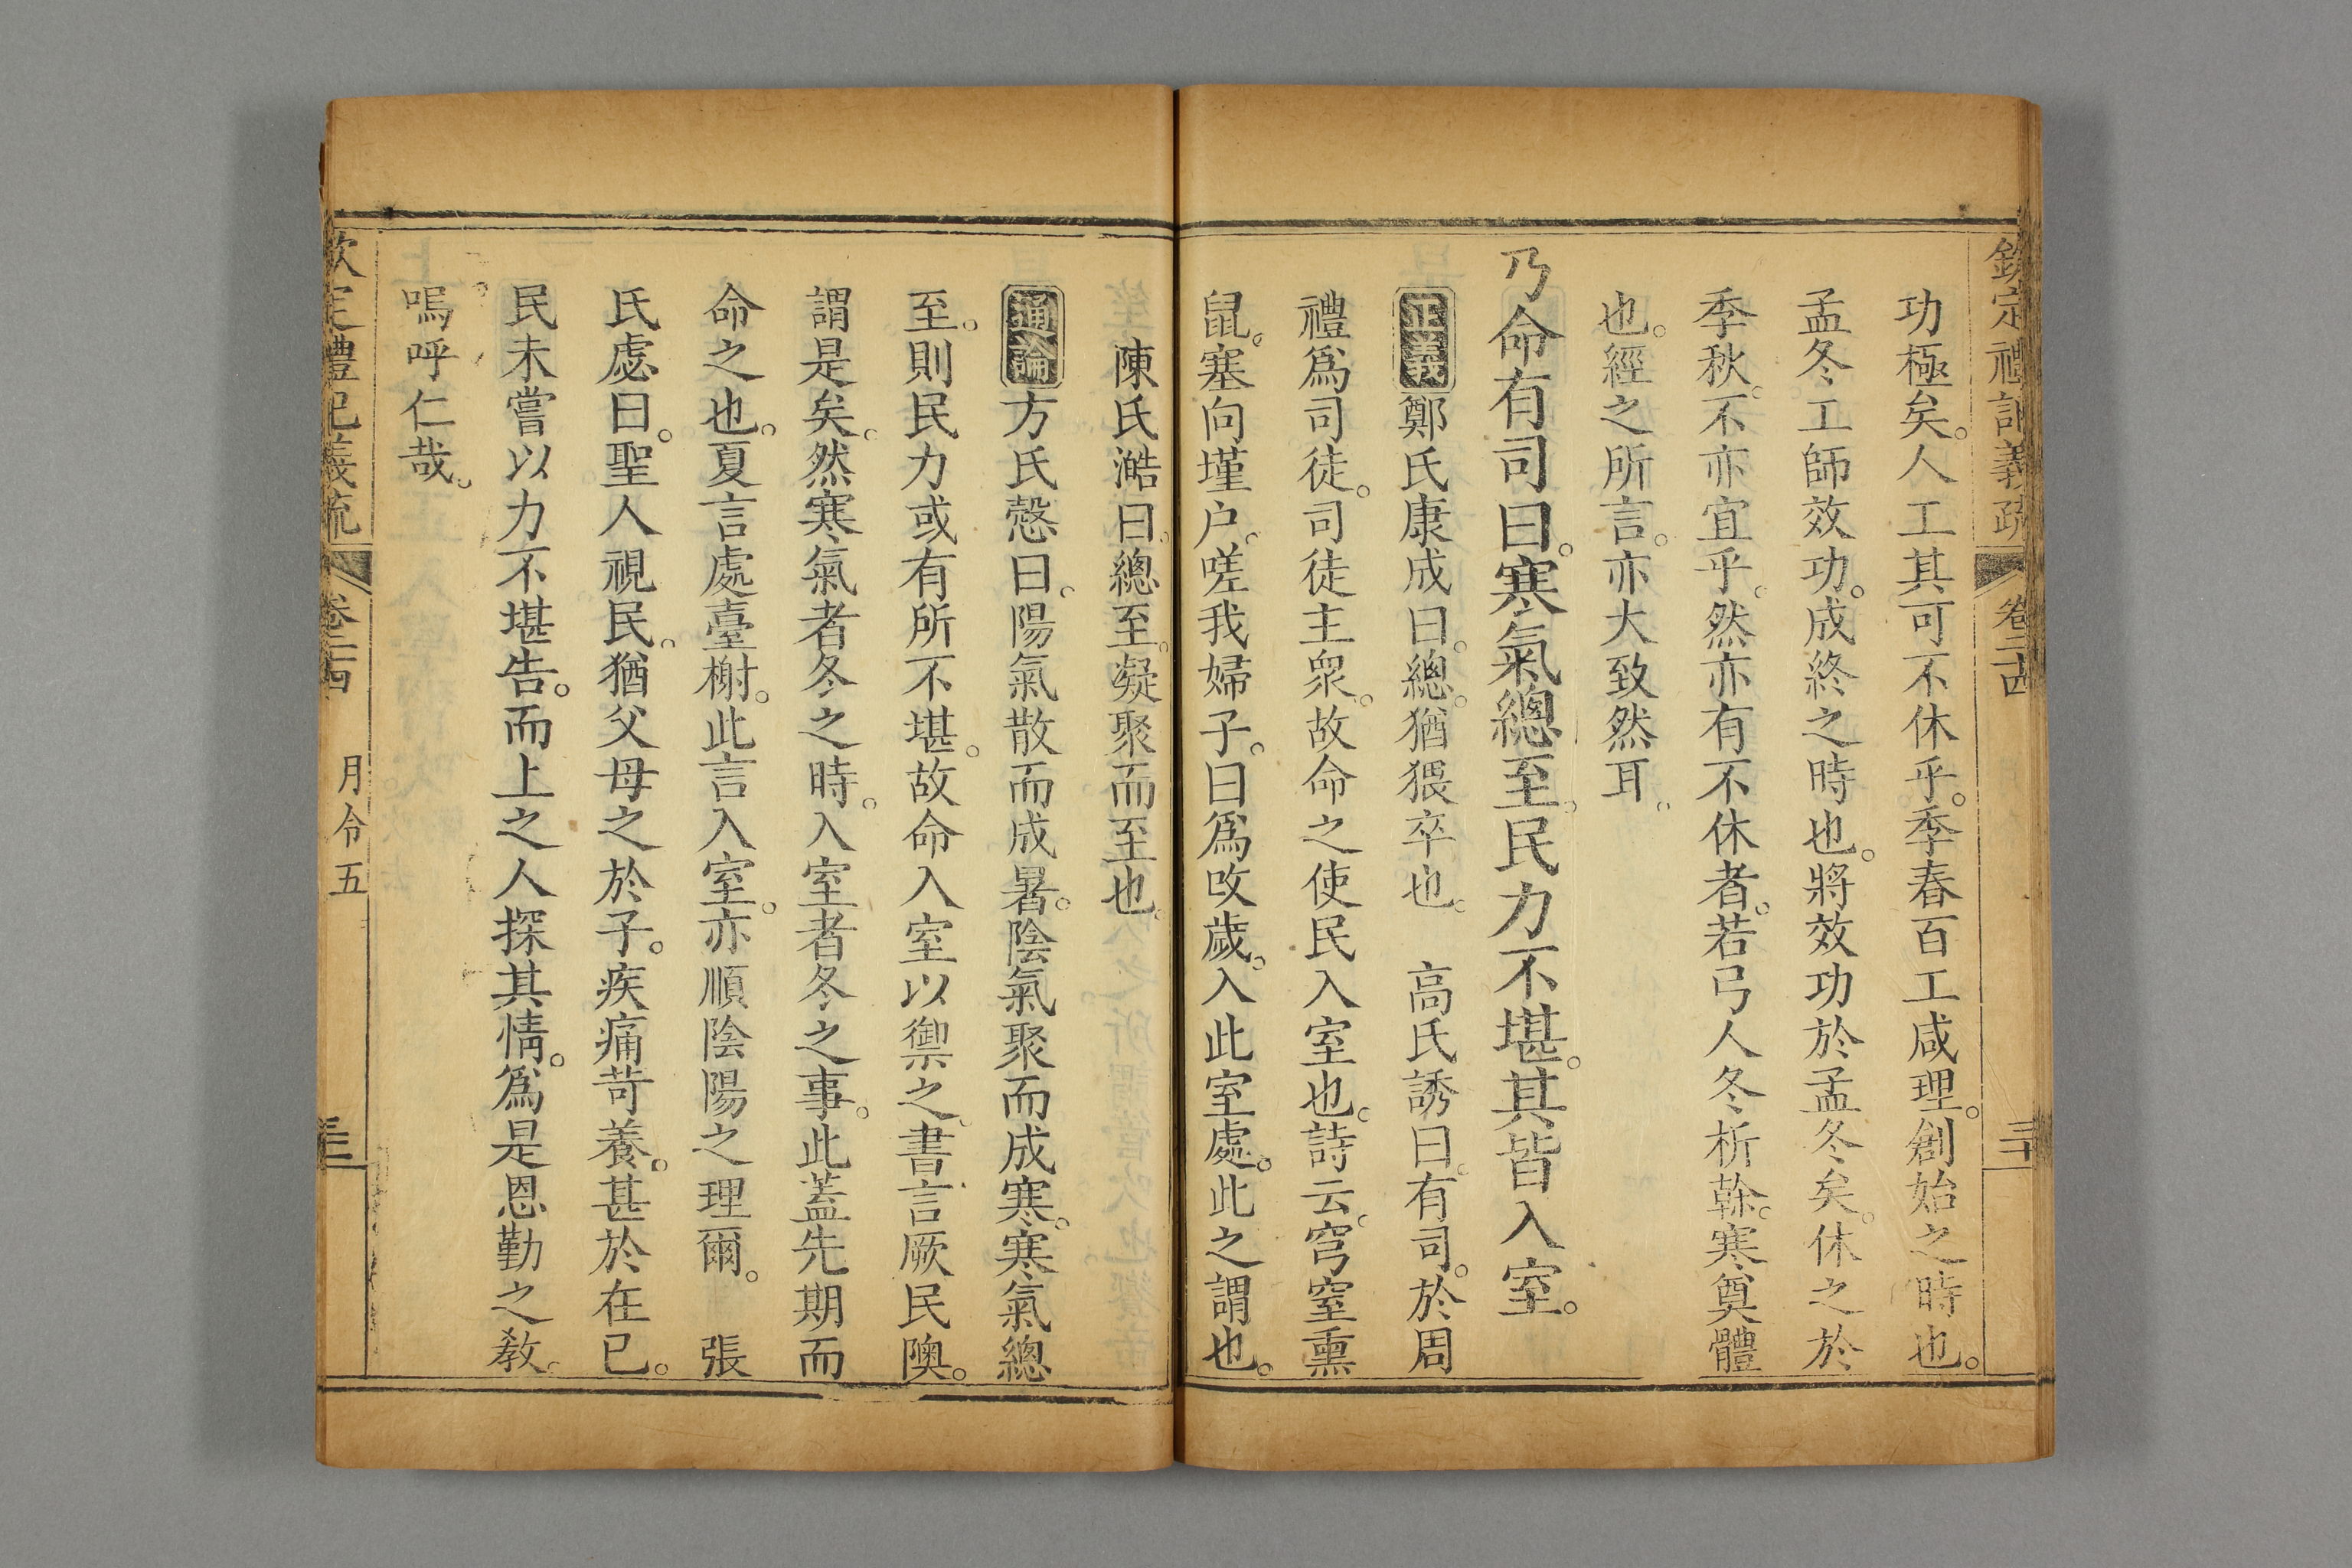 欽定禮記義疏 卷二十四 三十
功極矣。人工其可不休乎。季春百工咸理。創始之時也。
孟冬工師效功。成終之時也。將效功於孟冬矣。休之於
季秋。不亦宜乎。然亦有不休者。若弓人冬析榦。寒奠體
也。經之所言。亦大致然耳。
乃命有司曰。寒氣總至。民力不堪。其皆入室。
正義鄭氏康成曰。總。猶猥卒也。 高氏誘曰。有司。於周
禮爲司徒。司徒主眾。故命之使民入室也。詩云。穹窒熏
鼠。塞向墐户。嗟我婦子。曰爲改歲。入此室處。此之謂也。
陳氏澔曰。總至。凝聚而至也。
通論方氏慤曰。陽氣散而成暑。陰氣聚而成寒。寒氣總
至。則民力或有所不堪。故命入室以禦之。書言厥民隩。
謂是矣。然寒氣者冬之時。入室者冬之事。此蓋先期而
命之也。夏言處臺榭。此言入室。亦順陰陽之理爾。 張
氏虙曰。聖人視民。猶父母之於子。疾痛苛養。甚於在已。
民未嘗以力不堪告。而上之人探其情。爲是恩勤之教。
嗚呼仁哉。
欽定禮記義疏 卷二十四 月令五